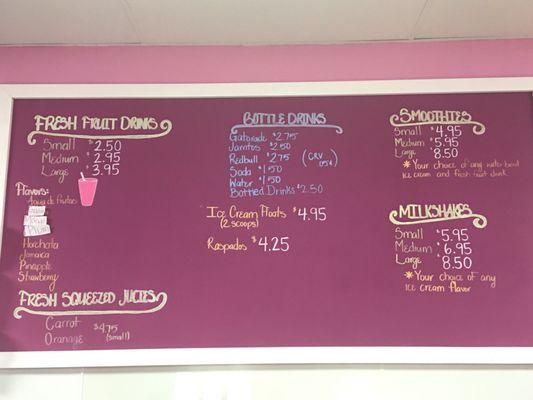 FRESH FRUIT DRINKS
Small $2.50
Medium $2.95
Large $3.95
Flavors:
Agua de frutas
Horchata
Jamaica
Pineapple
Strawberry
FRESH SQUEEZED JUICES
Carrot $4.75
Oranage (small)
BOTTLE DRINKS
Gatorade $2.75
Jarritos $2.50
Redbull $2.75 (CRV 05¢)
Soda $1.50
Water $1.50
Bottled Drinks $2.50
Ice Cream Floats $4.95
(2 scoops)
Raspados $4.25
SMOOTHIES
Small $4.95
Medium $5.95
Large $8.50
*Your choice of any water based
ice cream and fresh fruit drink
MILKSHAKES
Small $5.95
Medium $6.95
Large $8.50
*Your choice of any
ice cream flavor